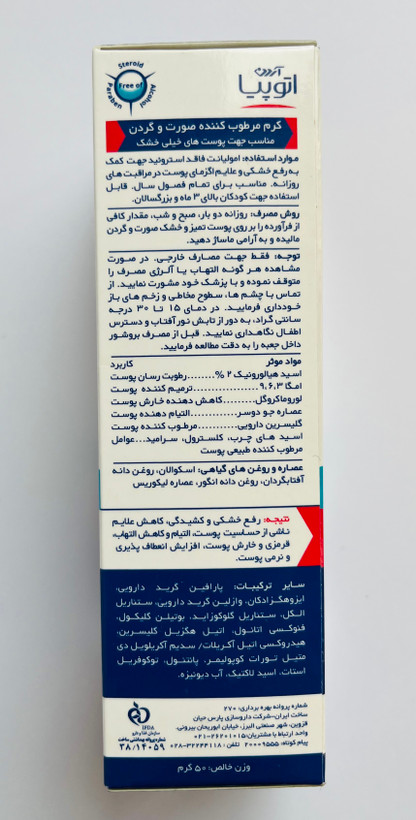 Steroid
Alcohol
Paraben
Free of
آردن
اتوپیا
کرم مرطوب کننده صورت و گردن
مناسب جهت پوست های خیلی خشک
موارد استفاده: امولیانت فاقد استروئید جهت کمک
به رفع خشکی و علایم اگزمای پوست در مراقبت های
روزانه. مناسب برای تمام فصول سال. قابل
استفاده جهت کودکان بالای ۳ ماه و بزرگسالان.
روش مصرف: روزانه دو بار، صبح و شب، مقدار کافی
از فرآورده را بر روی پوست تمیز و خشک صورت و گردن
مالیده و به آرامی ماساژ دهید.
توجه: فقط جهت مصارف خارجی. در صورت
مشاهده هر گونه التهاب یا آلرژی مصرف را
متوقف نموده و با پزشک خود مشورت نمایید. از
تماس با چشم ها، سطوح مخاطی و زخم های باز
خودداری فرمایید. در دمای ۱۵ تا ۳۰ درجه
سانتی گراد، به دور از تابش نور آفتاب و دسترس
اطفال نگاهداری نمایید. قبل از مصرف بروشور
داخل جعبه را به دقت مطالعه فرمایید.
مواد موثر کاربرد
اسید هیالورونیک ۲ %........رطوبت رسان پوست
امگا ۹،۶،۳......................ترمیم کننده پوست
لوروماکروگل..........کاهش دهنده خارش پوست
عصاره جو دوسر...............التیام دهنده پوست
گلیسرین دارویی...........مرطوب کننده پوست
اسید های چرب، کلسترول، سرامید...عوامل
مرطوب کننده طبیعی پوست
عصاره و روغن های گیاهی: اسکوالان، روغن دانه
آفتابگردان، روغن دانه انگور، عصاره لیکوریس
نتیجه: رفع خشکی و کشیدگی، کاهش علایم
ناشی از حساسیت پوست، التیام و کاهش التهاب،
قرمزی و خارش پوست، افزایش انعطاف پذیری
و نرمی پوست.
سایر ترکیبات: پارافین گرید دارویی،
ایزوهگزادکان، وازلین گرید دارویی، ستئاریل
الکل، ستئاریل گلوکوزاید، بوتیلن گلیکول،
فنوکسی اتانول، اتیل هگزیل گلیسرین،
هیدروکسی اتیل آکریلات/ سدیم آکریلویل دی
متیل تورات کوپولیمر، پانتنول، توکوفریل
استات، اسید لاکتیک، آب دیونیزه.
شماره پروانه بهره برداری: ۲۷۰
ساخت ایران-شرکت داروسازی پارس حیان
قزوین، شهر صنعتی البرز، خیابان ابوریحان بیرونی.
واحد ارتباط با مشتریان:۲۶۲۰۱۰۱۵-۰۲۱
پیام کوتاه: ۲۰۰۰۹۵۵۵ تلفن: ۳۲۲۴۴۱۱۸-۰۲۸
IFDA
سازمان غذا و دارو
شماره پروانه بهداشتی ساخت
۳۸/۱۴۰۵۹
وزن خالص: ۵۰ گرم